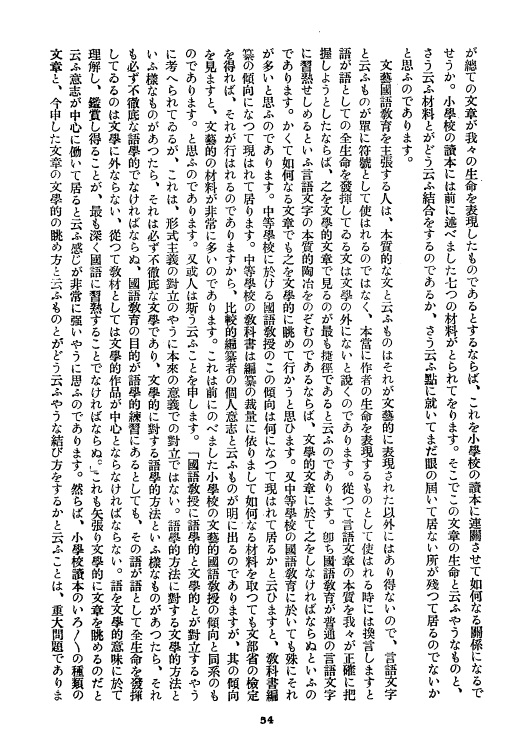 が總ての文章が我々の生命を表現したものであるとするならば、これを小學校の讀本に連關させて如何なる關係になるで
せうか。小學校の讀本には前に述べました七つの材料がとられてをります。そこでこの文章の生命と云ふやうなものと、
さう云ふ材料とがどう云ふ結合をするのであるか、さう云ふ點に就いてまだ眼の屆いて居ない所が殘つて居るのでないか
と思ふのであります。
文藝國語教育を主張する人は、本質的な文と云ふものはそれが文藝的に表現された以外にはあり得ないので、言語文字
と云ふものが單に符號として使はれるのではなく、本當に作者の生命を表現するものとして使はれる時には換言しますと
語が語としての全生命を發揮してゐる文は文學の外にないと說くのであります。從つて言語文章の本質を我々が正確に把
握しようとしたならば、之を文學的文章で見るのが最も捷徑であると云ふのであります。卽ち國語教育が普通の言語文字
に習熟せしめるといふ言語文字の本質的陶冶をのぞむのであるならば、文學的文章に於て之をしなければならぬといふの
であります。かくて如何なる文章でも之を文學的に眺めて行かうと思ひます。又中等學校の國語敎育に於いても殊にそれ
が多いと思ふのであります。中等學校に於ける國語敎授のこの傾向は何になつて現はれて居るかと云ひますと、敎科書編
纂の傾向になつて現はれて居ります。中等學校の敎科書は編纂の裁量に依りまして如何なる材料を取つても文部省の檢定
を得れば、それが行はれるのでありますから、比較的編纂者の個人意志と云ふものが明に出るのでありますが、其の傾向
を見ますと、文藝的の材料が非常に多いのであります。これは前にのべました小學校の文藝的國語敎授の傾向と同系のも
のであります。と思ふのであります。又或人は斯う云ふことを申します。「國語敎授に語學的と文學的とが對立するやう
に考へられてゐるが、これは、形式主義の對立のやうに本來の意義での對立ではない。語學的方法に對する文學的方法と
いふ樣なものがあつたら、それは必ず不徹底な文學であり、文學的に對する語學的方法といふ樣なものがあつたら、それ
も必ず不徹底な語學的でなければならぬ、國語敎育の目的が語學的練習にあるとしても、その語が語として全生命を發揮
してゐるのは文學に外ならない、從つて敎材としては文學的作品が中心とならなければならない。語を文學的意味に於て
理解し、鑑賞し得ることが、最も深く國語に習熟することでなければならぬ。」これも矢張り文學的に文章を眺めるのだと
云ふ意志が中心に働いて居ると云ふ感じが非常に强いやうに思ふのであります。然らば、小學校讀本のいろ〱の種類の
文章と、今申した文章の文學的の眺め方と云ふものとがどう云ふやうな結び方をするかと云ふことは、重大問題でありま
54